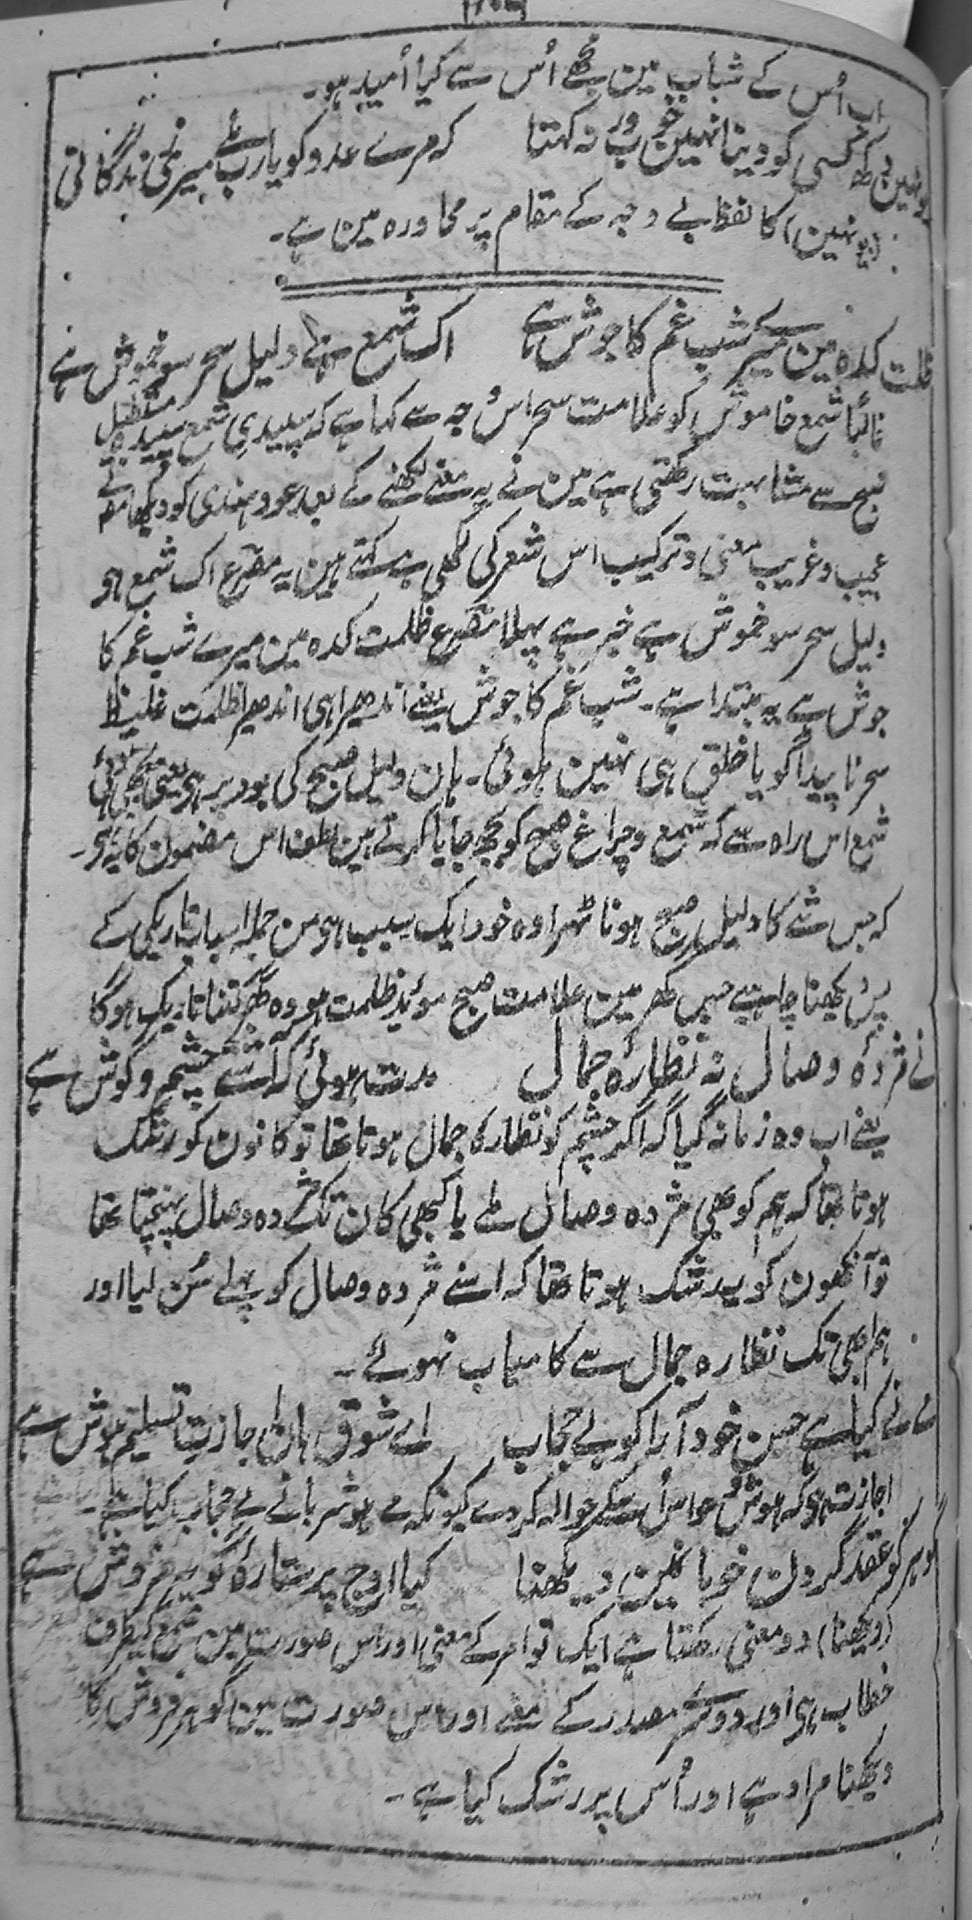 اب اُس کے شباب مین مجھے اُس سے کیا اُمید ہو۔
یونہین دکھ کسی کو دینا نہین خوب ورنہ کہتا کہ مرے عدو کو یارب ملے میری زندگانی
(یونہین) کا لفظ بے وجہ کے مقام پر محاورہ مین ہے۔
ظلمت کدہ مین میرے شب غم کا جوش ہے اک شمع ہے دلیل سحر سو خموش ہے
غالباً شمع خاموش کو علامت سحر اس وجہ سے کہا ہے کہ سپیدی شمع سپیدہ
صبح سے مشابہت رکھتی ہے مین نے یہ معنے لکھنے کے بعد عود ہندی کو دیکھا
عجیب و غریب معنی و ترکیب اس شعر کی لکھی ہے کہتے ہین یہ مصرع اک شمع ہو
دلیل سحر سو خموش ہے خبر ہے پہلا مصرع ظلمت کدہ مین میرے شب غم کا
جوش ہے یہ مبتدا ہے۔ شب غم کا جوش یعنے اندھیرا ہی اندھیرا ظلمت غلیظ
سحر ناپیدا گویا خلق ہی نہین ہوئی۔ ہان دلیل صبح کی بود پر ہو یعنی بجھی ہوئی
شمع اس راہ سے کہ شمع و چراغ صبح کو بجھ جایا کرتے ہین لطف اس مضمون کا یہ ہو۔
کہ جس شے کا دلیل صبح ہونا ٹھہرا وہ خود ایک سبب ہو من جملہ اسباب تاریکی کے
پس دیکھنا چاہیے جس گھر مین علامت صبح موئید ظلمت ہو وہ گھر کتنا تاریک ہوگا
نے مژدہ وصال نہ نظارہ جمال مدت ہوئی کہ آشتی چشم و گوش ہے
یعنے اب وہ زمانہ گیا کہ اگر چشم کو نظارہ کا جمال ہوتا تھا تو کانون کو رشک
ہوتا تھا کہ ہم کو بھی مژدہ وصال ملے یا کبھی کان تک مژدہ وصال پہنچتا تھا
تو آنکھون کو یہ رشک ہوتا تھا کہ اسنے مژدہ وصال کو پہلے سُن لیا اور
ہم ابھی تک نظارہ جمال سے کامیاب نہوئے۔
مے نے کیا ہے حسن خود آرا کو بے حجاب اے شوق ہان اجازت تسلیم ہوش ہے
اجازت ہو کہ ہوش و حواس اُس کے حوالہ کردے کیونکہ مے ہوشربا نے بے حجاب کیا ہے۔
گوہر کو عقد گردن خوبان مین دیکھنا کیا اوج پر ستارہ گوہر فروش ہے
(دیکھنا) دو معنی رکھتا ہے ایک تو امر کے معنی اور اس صورت مین کیطرف
خطاب ہو اور دوسرے مصدر کے معنے اور اس صورت مین گوہر فروش کا
دیکھنا مراد ہے اور اُس پر رشک کیا ہے۔